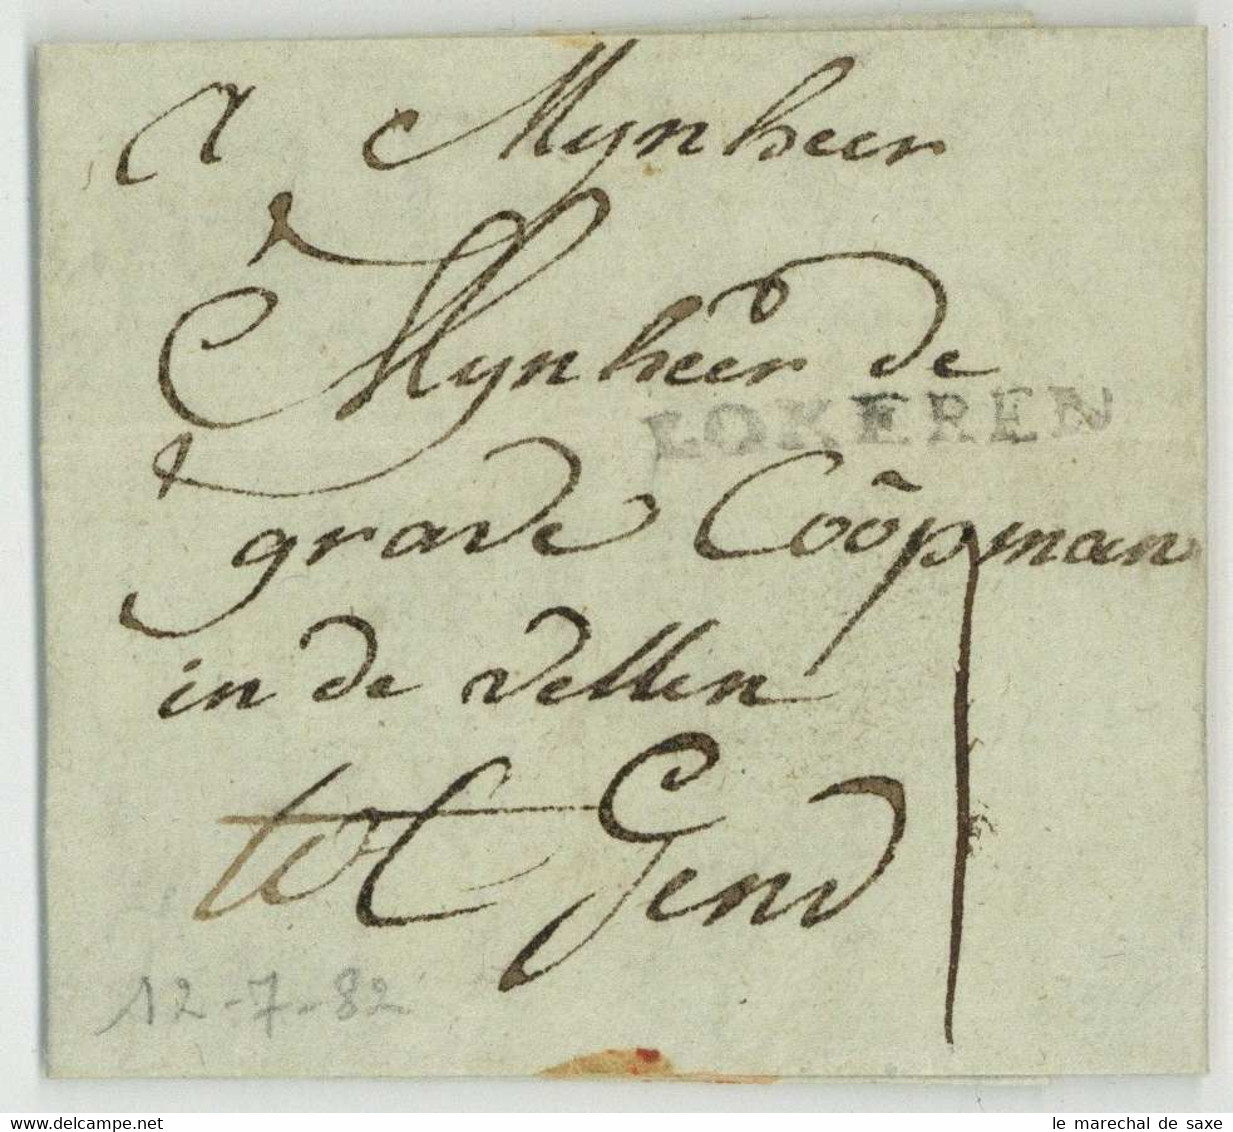 A Mynheer
Mynheer de
LOKEREN
grave Coõpman
in de vellen
tot Gend
1
12-7-82
delcampe.net
le marechal de saxe